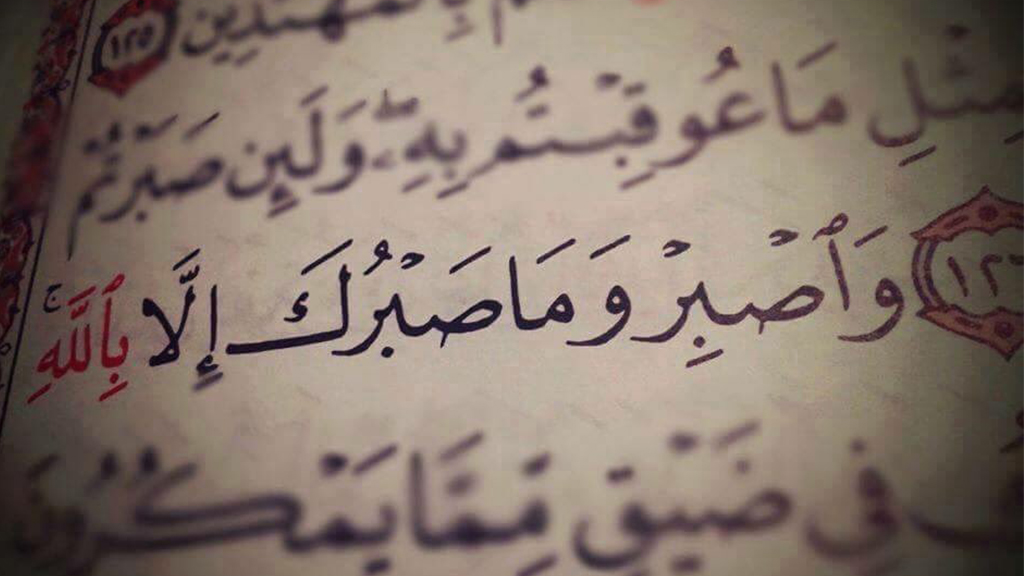 بِٱلْمُهْتَدِينَ ١٢٥
بِمِثْلِ مَا عُوقِبْتُم بِهِۦ ۖ وَلَئِن صَبَرْتُمْ
١٢٦ وَٱصْبِرْ وَمَا صَبْرُكَ إِلَّا بِٱللَّهِ ۚ
فِى ضَيْقٍ مِّمَّا يَمْكُرُونَ